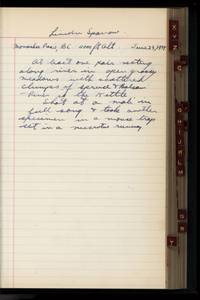 Lincoln Sparrow
Monashee Pass, BC 4000 ft Alt. June 29,
At least one pair nesting
along river in open grassy
meadows with scattered
clumps of spruce & Balsam
of the Kettle
Shot at a male in
full song & took another
specimen in a mouse trap
set in a microtus runway
X
Y
Z
G
H
I
J
K
L
M
S
R
T